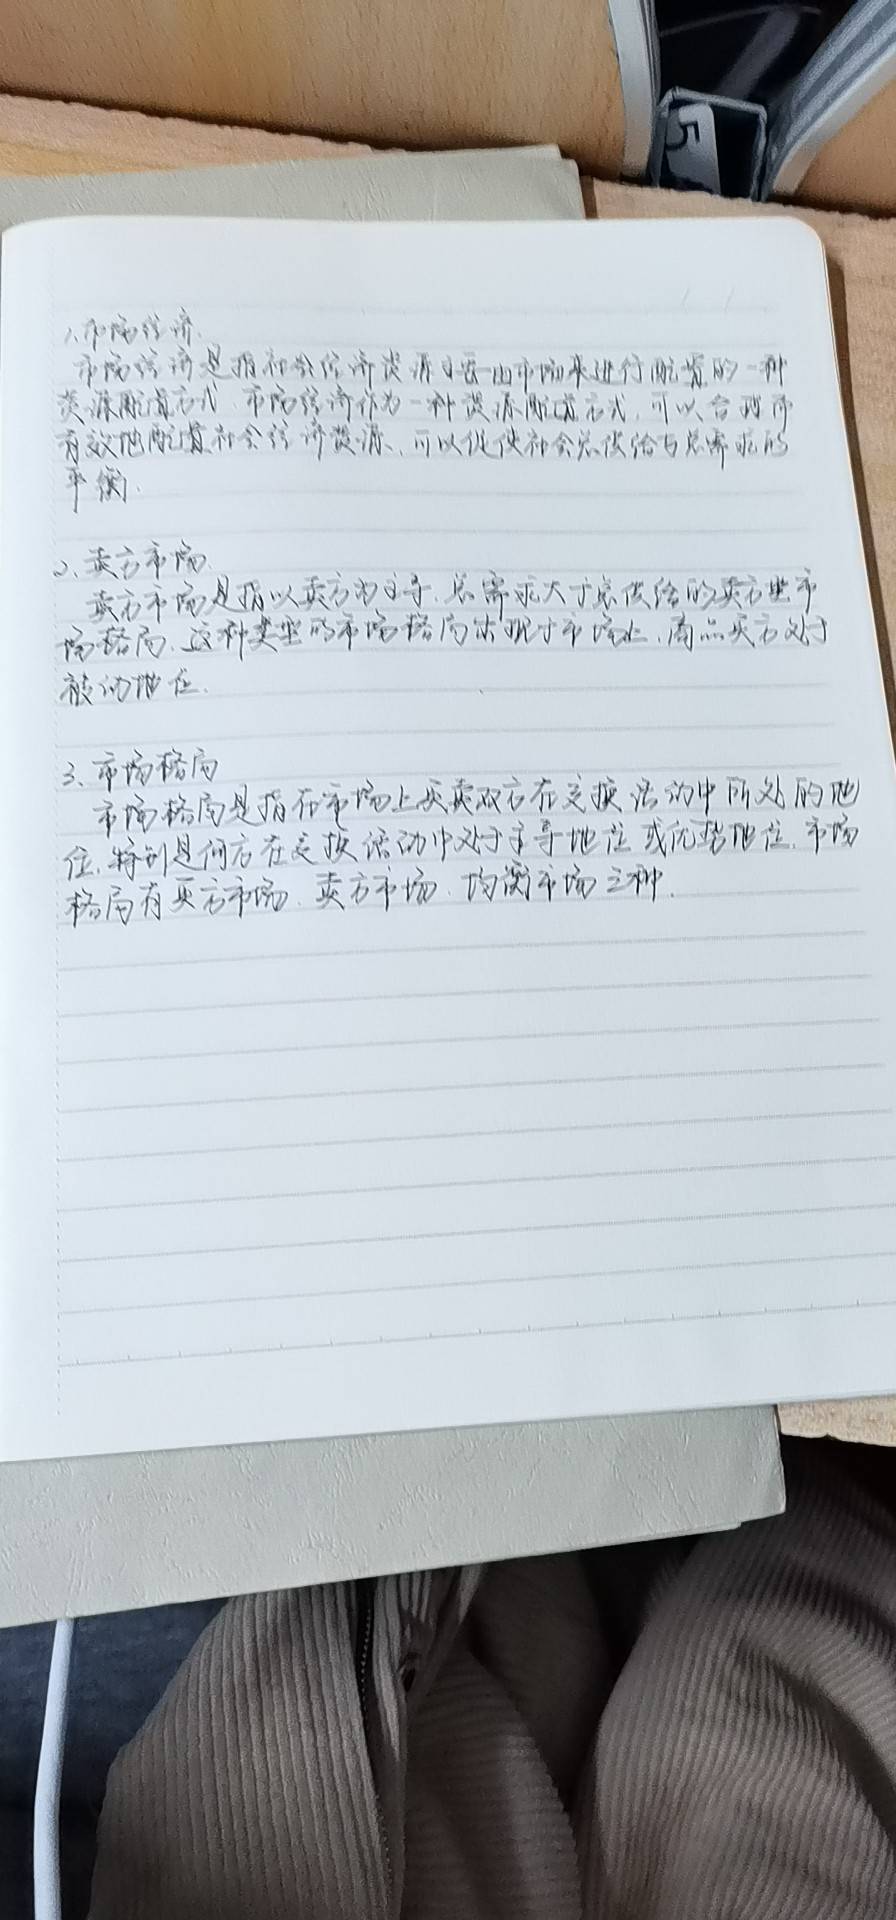 5
1.市场经济.
市场经济是指社会经济资源主要由市场来进行配置的一种
资源配置方式 市场经济作为一种资源配置方式,可以合理而
有效地配置社会经济资源、可以促使社会总供给与总需求的
平衡.
2、卖方市场.
卖方市场是指以卖方为主导,总需求大于总供给的卖方型市
场格局,这种类型的市场格局出现于市场上,商品买方处于
被动地位.
3、市场格局
市场格局是指在市场上买卖双方在交换活动中所处的地
位,特别是何方在交换活动中处于主导地位或优势地位,市场
格局有买方市场、卖方市场、均衡市场三种.